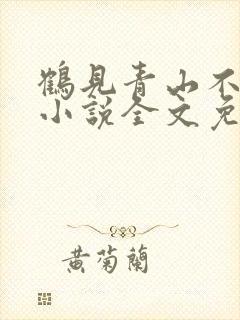 鶴見青山不
小說全文免
黄菊蘭